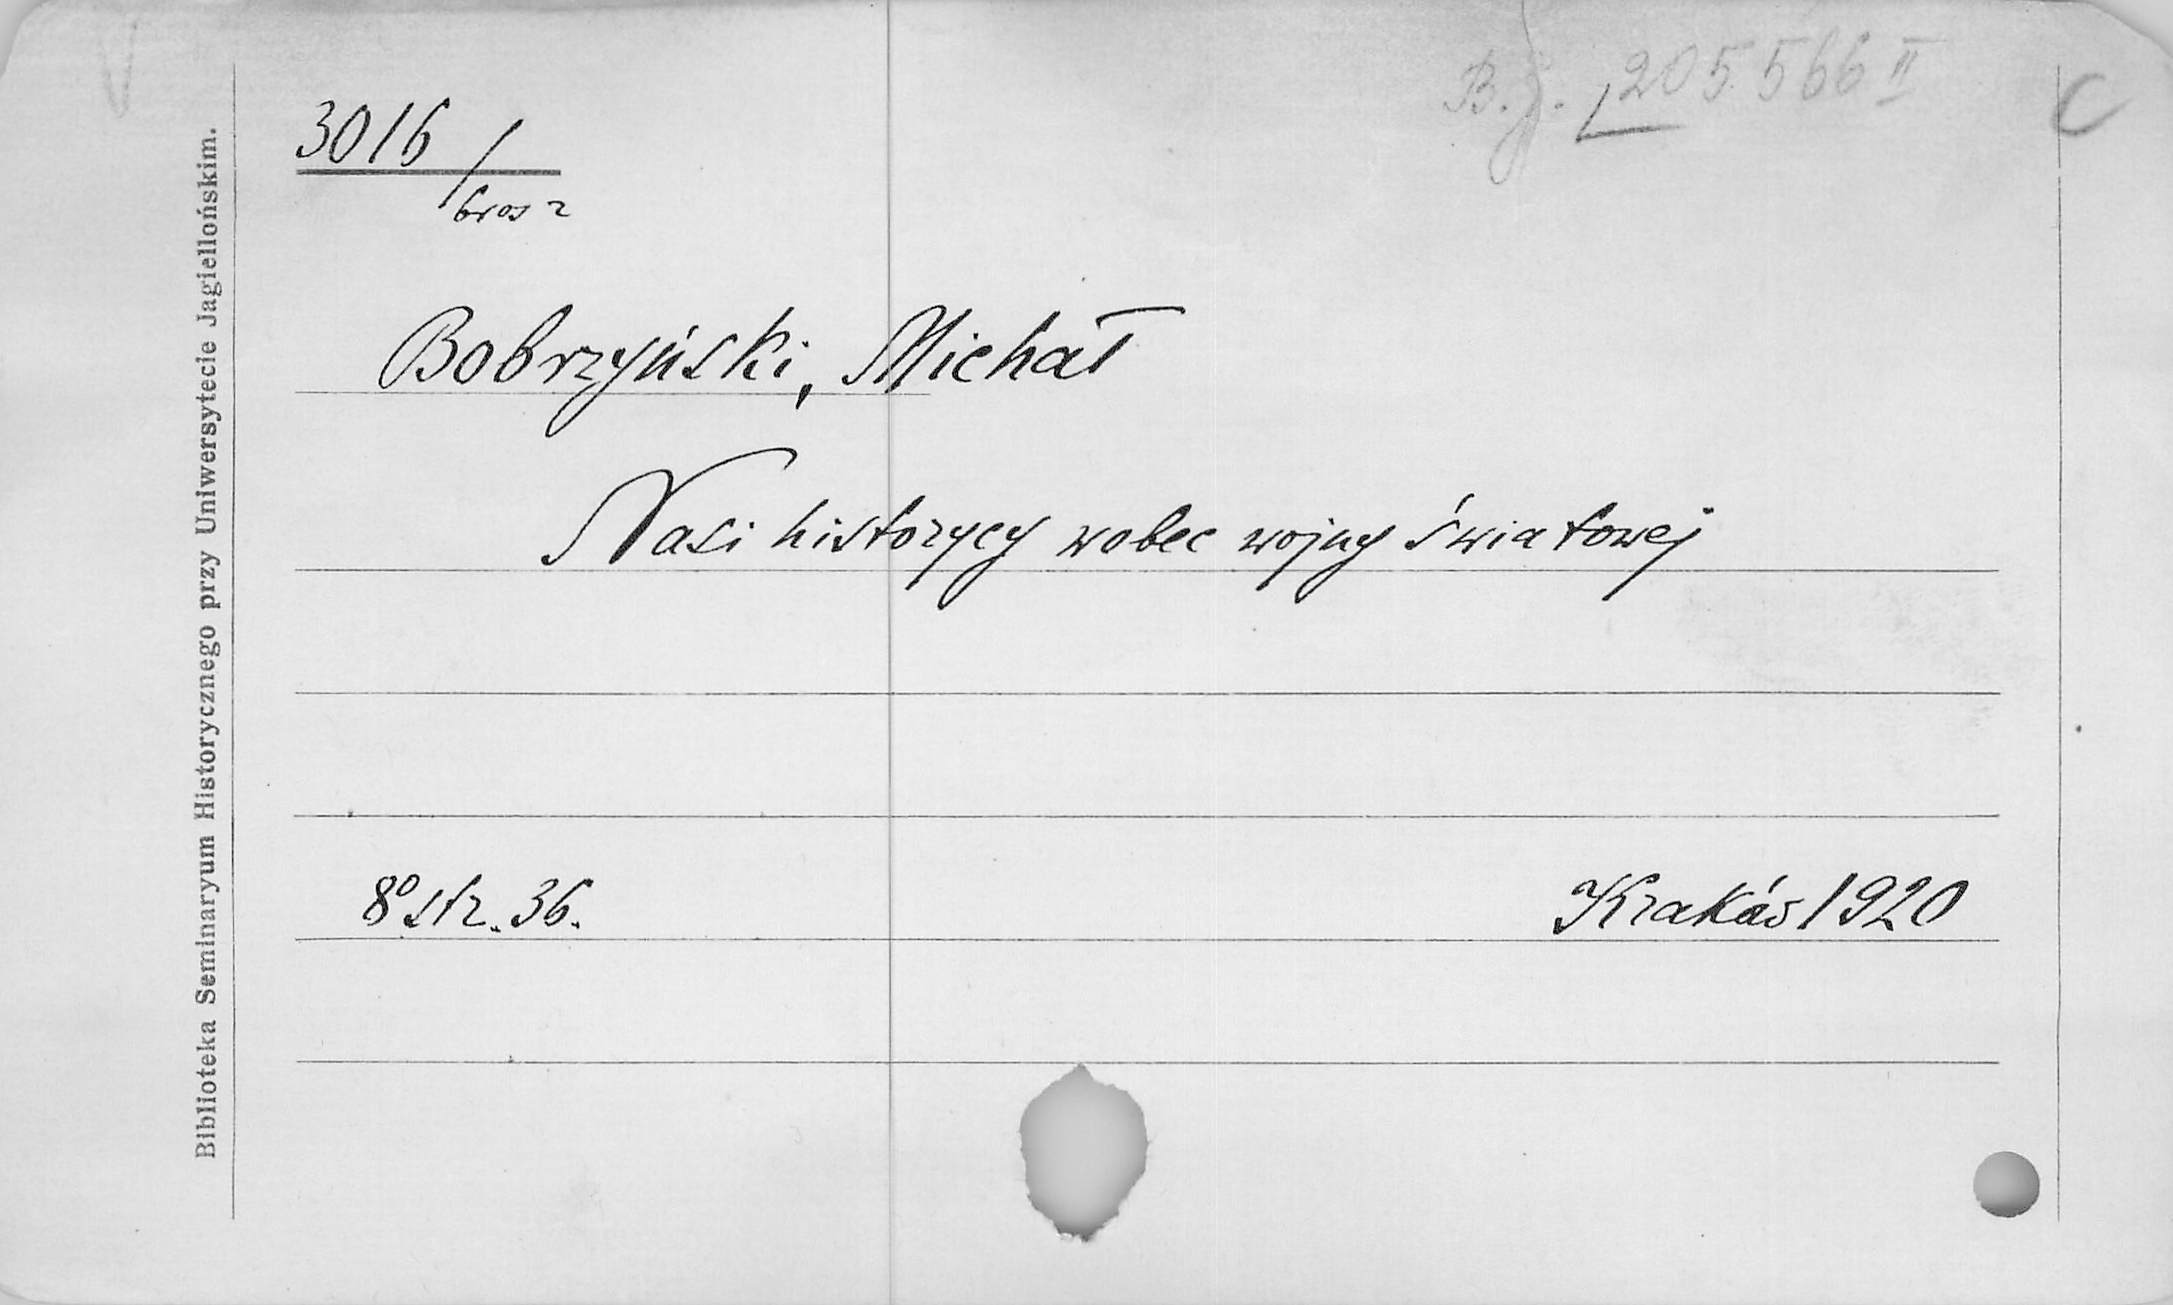 B.J. 205566 II
C
3016 / brosz
Bobrzyński, Michał
Nasi historycy wobec wojny światowej
8° str. 36.
Kraków 1920
Biblioteka Seminaryum Historycznego przy Uniwersytecie Jagiellońskim.